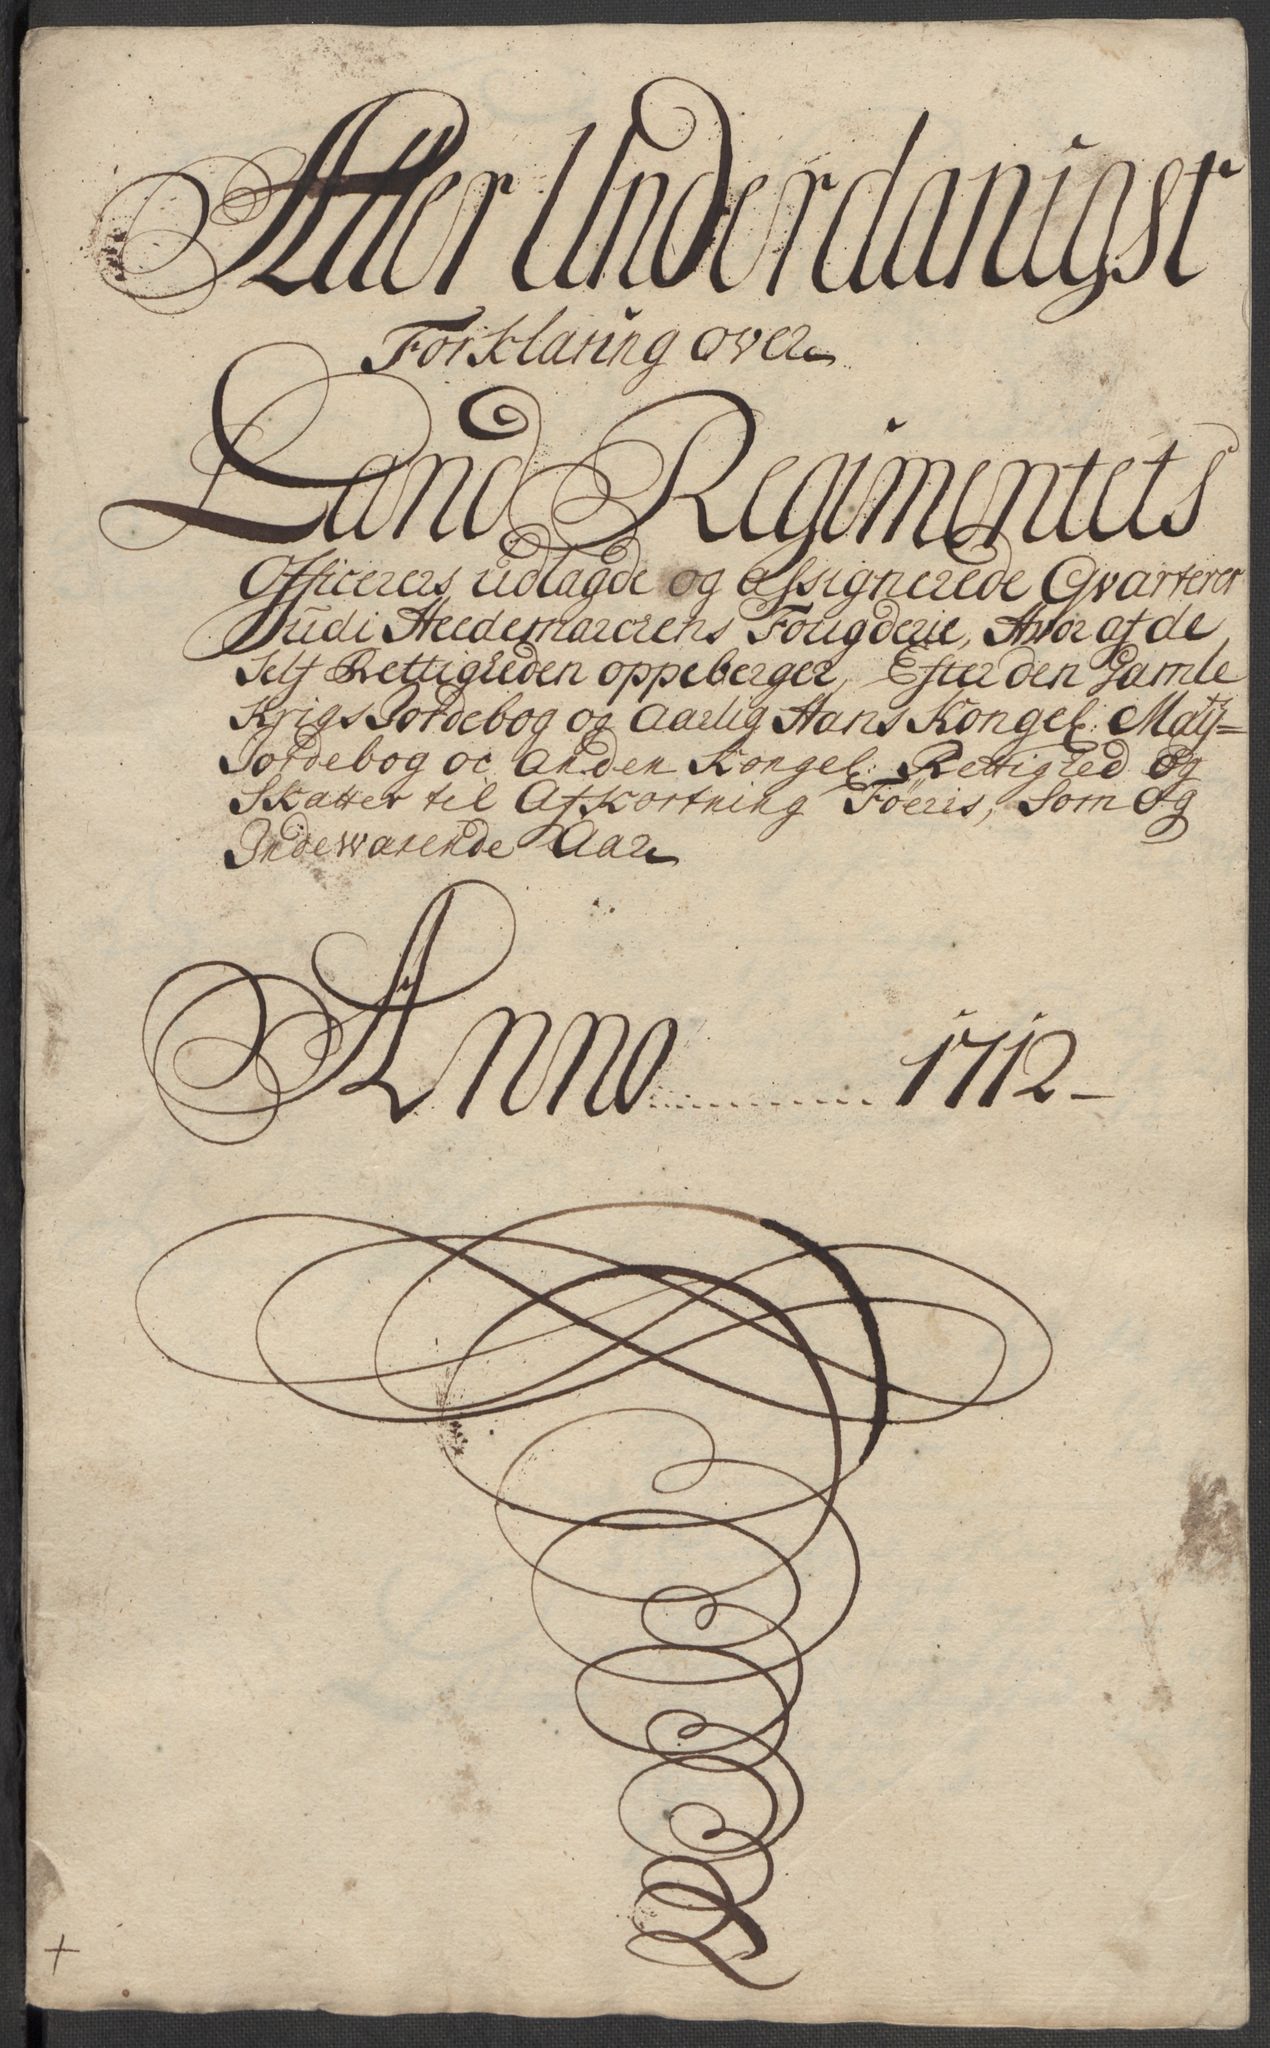 Aller Underdanigst
Forklaring over
Land Regimentets
Officerers udlagde og assignerede Qvarterer
udi Heedemarckens Fougderie, Hvor af de
self Rettigheden oppeberger, Efter den Gamle
Krigs Jordebog og Aarlig Hans Kongel: Mayts=
Jordebog oc anden Kongel: Rettighed og
Skatter til Afkortning Föeris, som og
Indewarende Aar
Anno ............ 1712